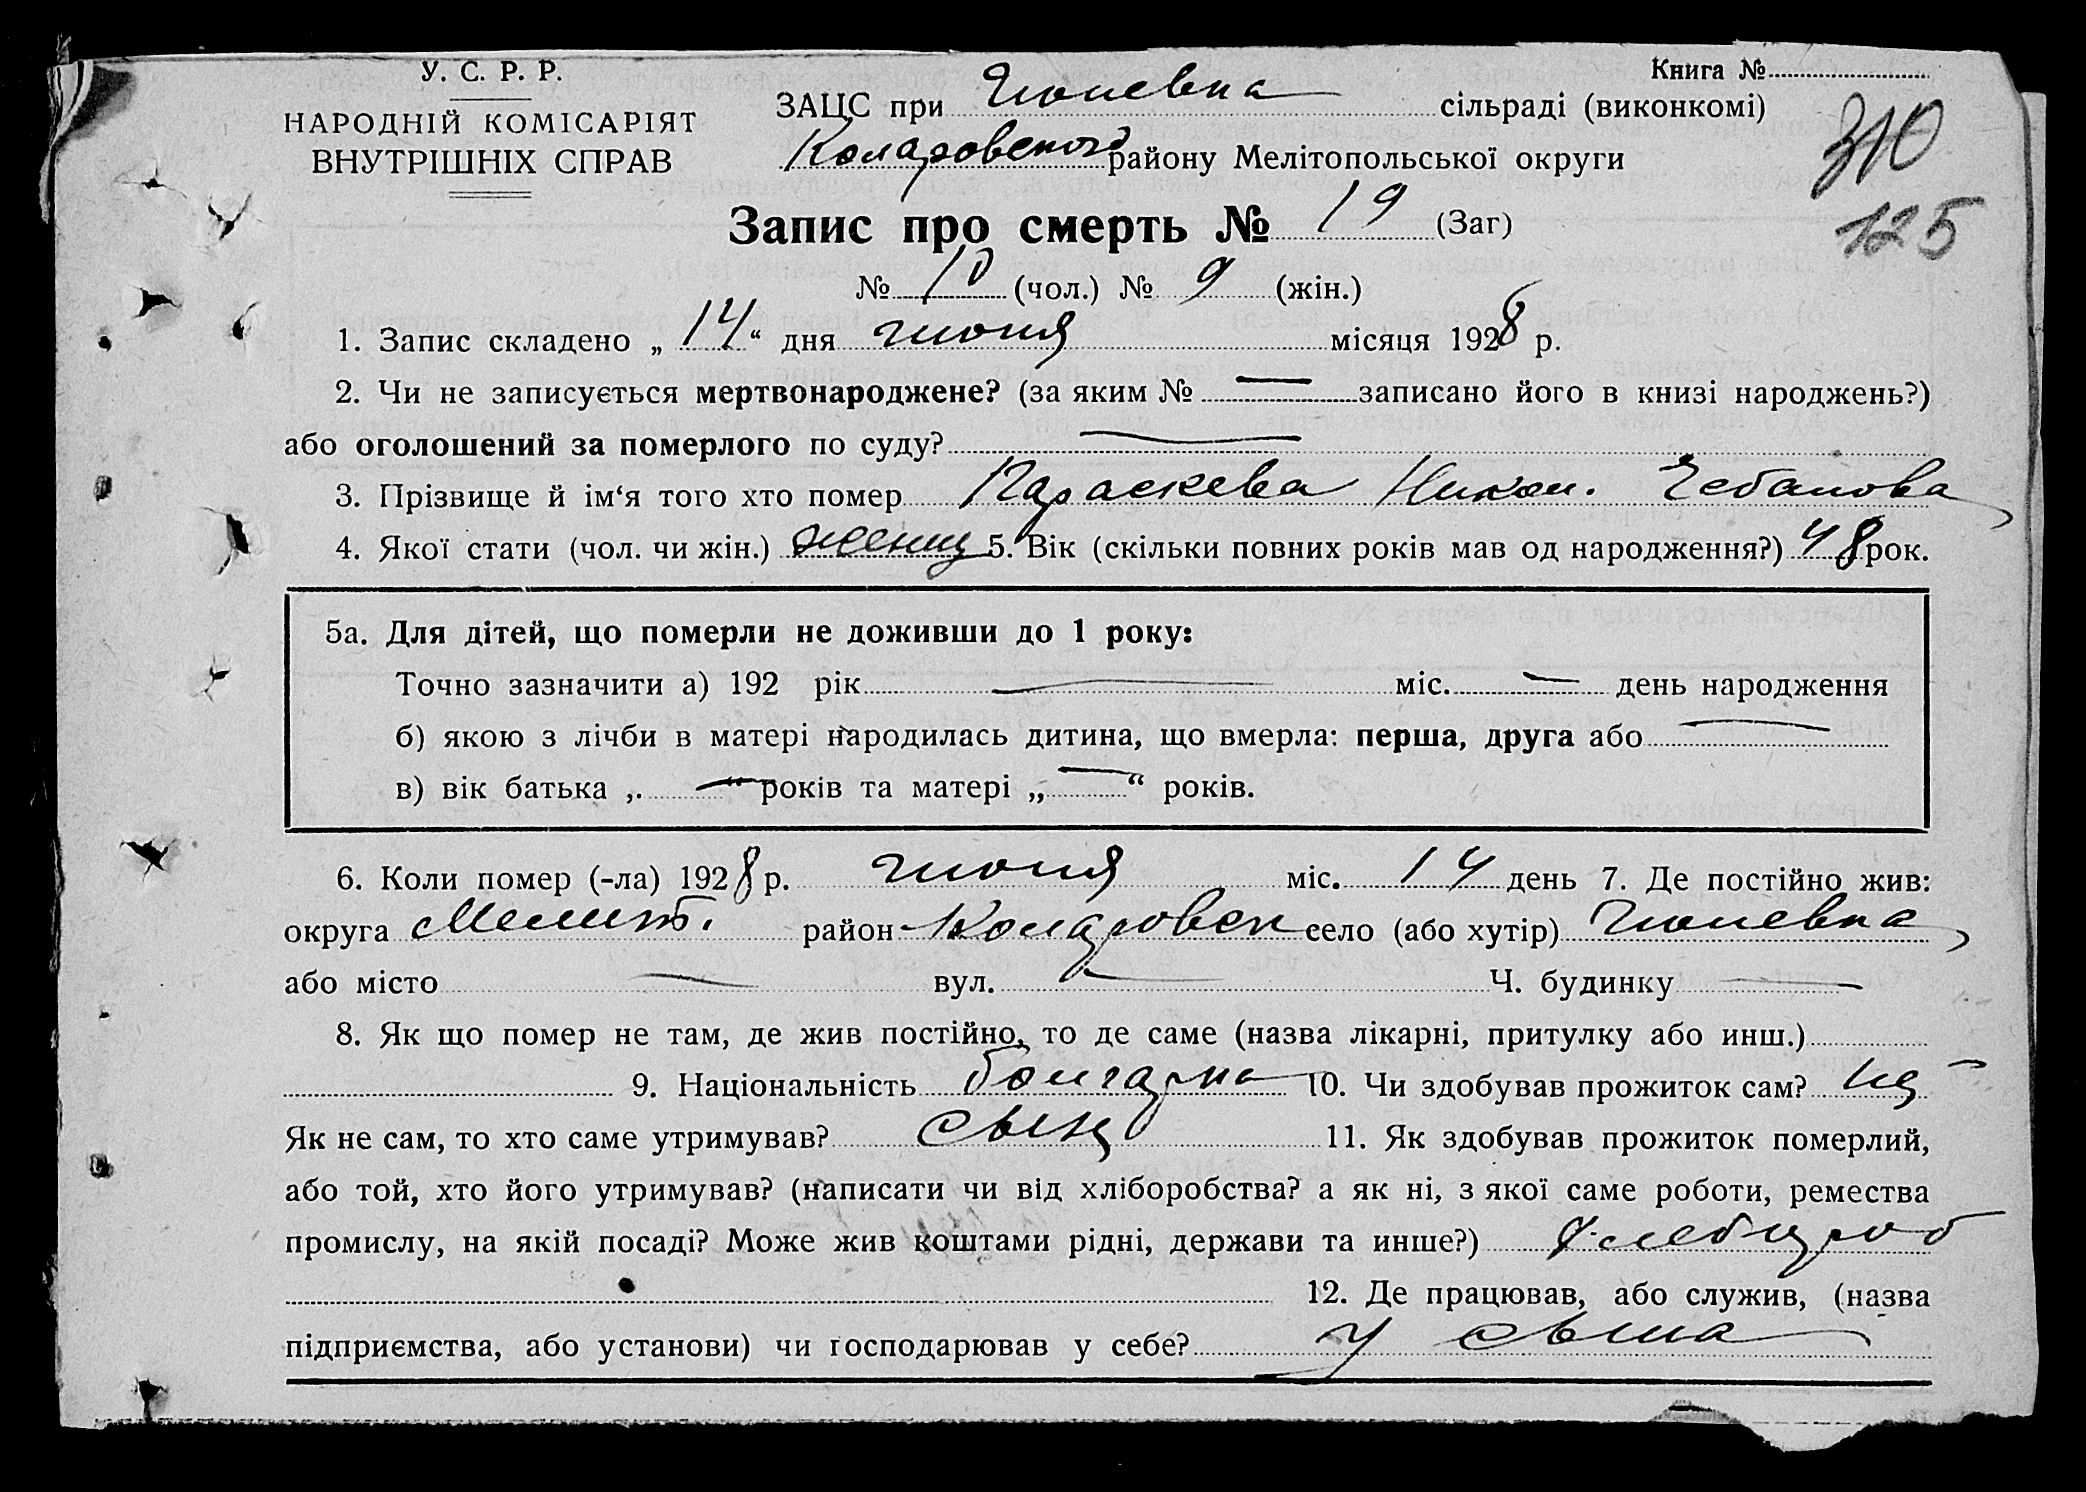 У. С. Р. Р.
НАРОДНІЙ КОМІСАРІЯТ
ВНУТРІШНІХ СПРАВ
Книга №
ЗАЦС при Гюневка сільраді (виконкомі)
Коларовского району Мелітопольської округи
310
125
Запис про смерть № 19 (Заг)
№ 10 (чол.) № 9 (жін.)
1. Запис складено „ 14 “ дня июня місяця 1928 р.
2. Чи не записується мертвонароджене? (за яким № — записано його в книзі народжень?)
або оголошений за померлого по суду? —
3. Прізвище й ім‘я того хто помер Параскева Никол. Чебанова
4. Якої стати (чол. чи жін.) женщ 5. Вік (скільки повних років мав од народження?) 48 рок.
5а. Для дітей, що померли не доживши до 1 року:
Точно зазначити а) 192 рік — міс. — день народження
б) якою з лічби в матері народилась дитина, що вмерла: перша, друга або —
в) вік батька „ — “ років та матері „ — “ років.
6. Коли помер (-ла) 1928 р. июня міс. 14 день 7. Де постійно жив:
округа Мелит. район Коларовск село (або хутір) Гюневка
або місто — вул. — Ч. будинку —
8. Як що помер не там, де жив постійно, то де саме (назва лікарні, притулку або инш.)
9. Національність болгарка 10. Чи здобував прожиток сам?
Як не сам, то хто саме утримував? сын 11. Як здобував прожиток померлий,
або той, хто його утримував? (написати чи від хліборобства? а як ні, з якої саме роботи, ремества
промислу, на якій посаді? Може жив коштами рідні, держави та инше?) хлебороб
12. Де працював, або служив, (назва
підприємства, або установи) чи господарював у себе? у сына